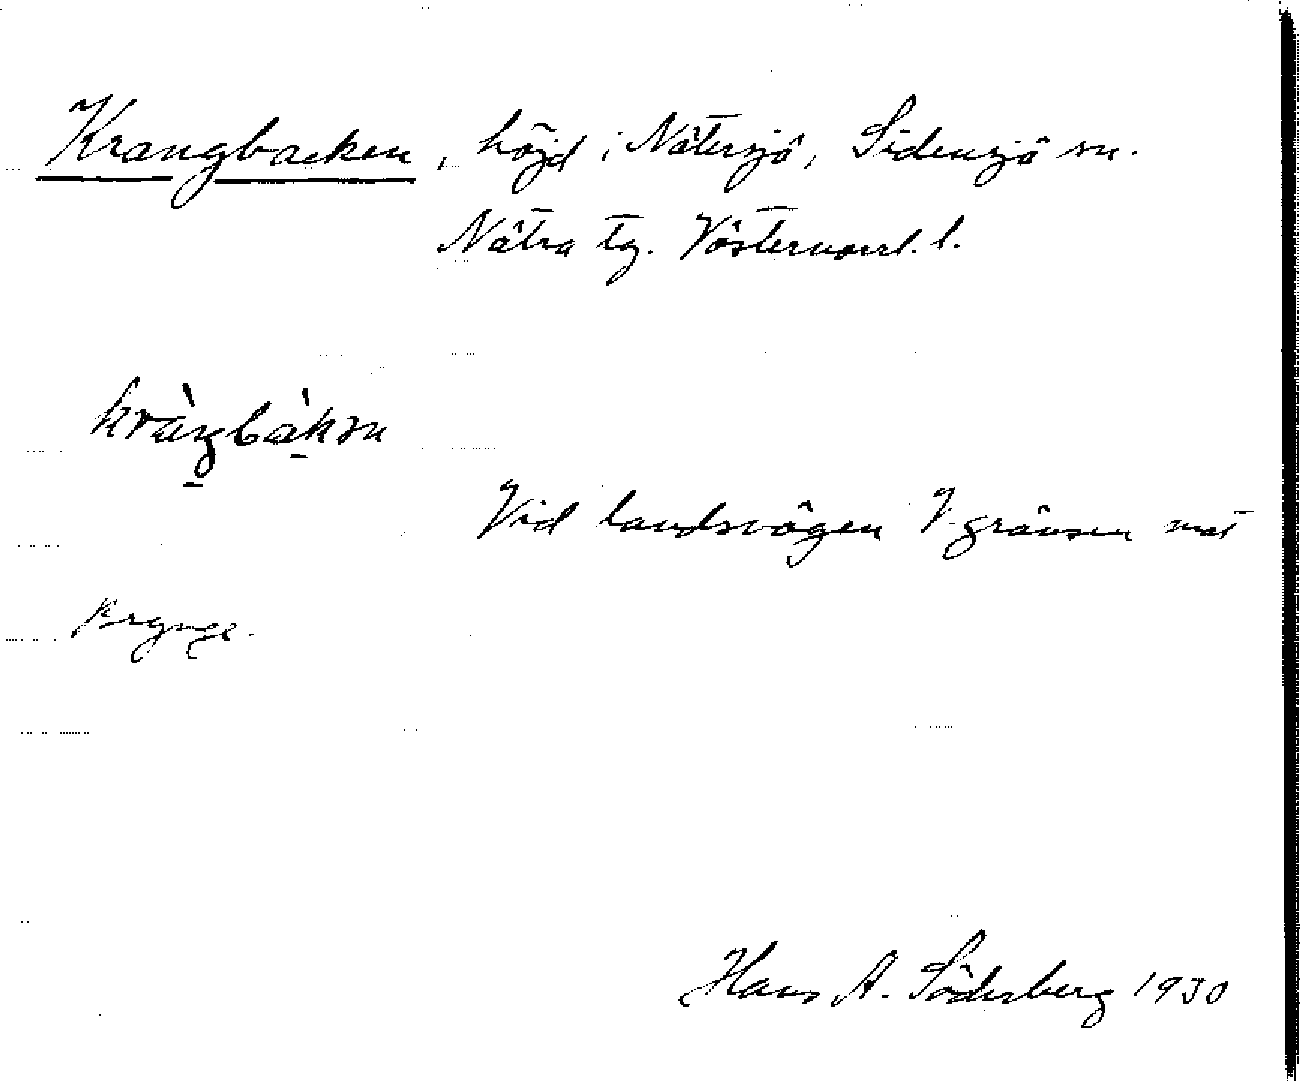 Krangbacken, höjd i Nätersjö, Sidensjö sn.
Nätra tg. Västernorrl. l.
kràŋbàkən
Vid landsvägen V. gränsen mot
Brynge.
Hans A. Söderberg 1930